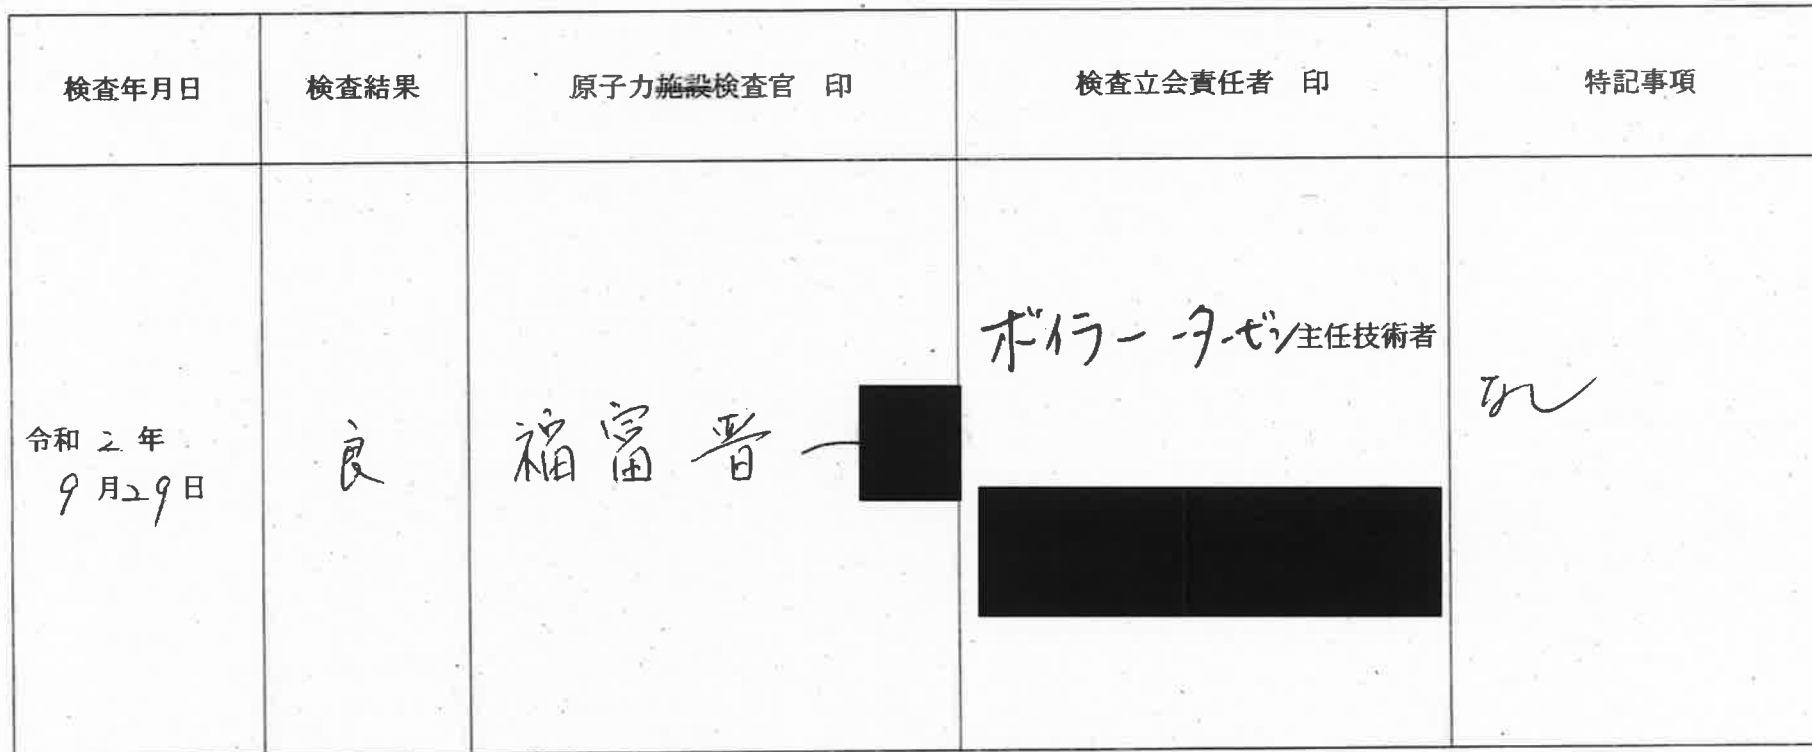 検査年月日
検査結果
原子力施設検査官 印
検査立会責任者 印
特記事項
令和 2 年
9 月 29 日
良
福富晋一
ボイラー・タービン主任技術者
なし